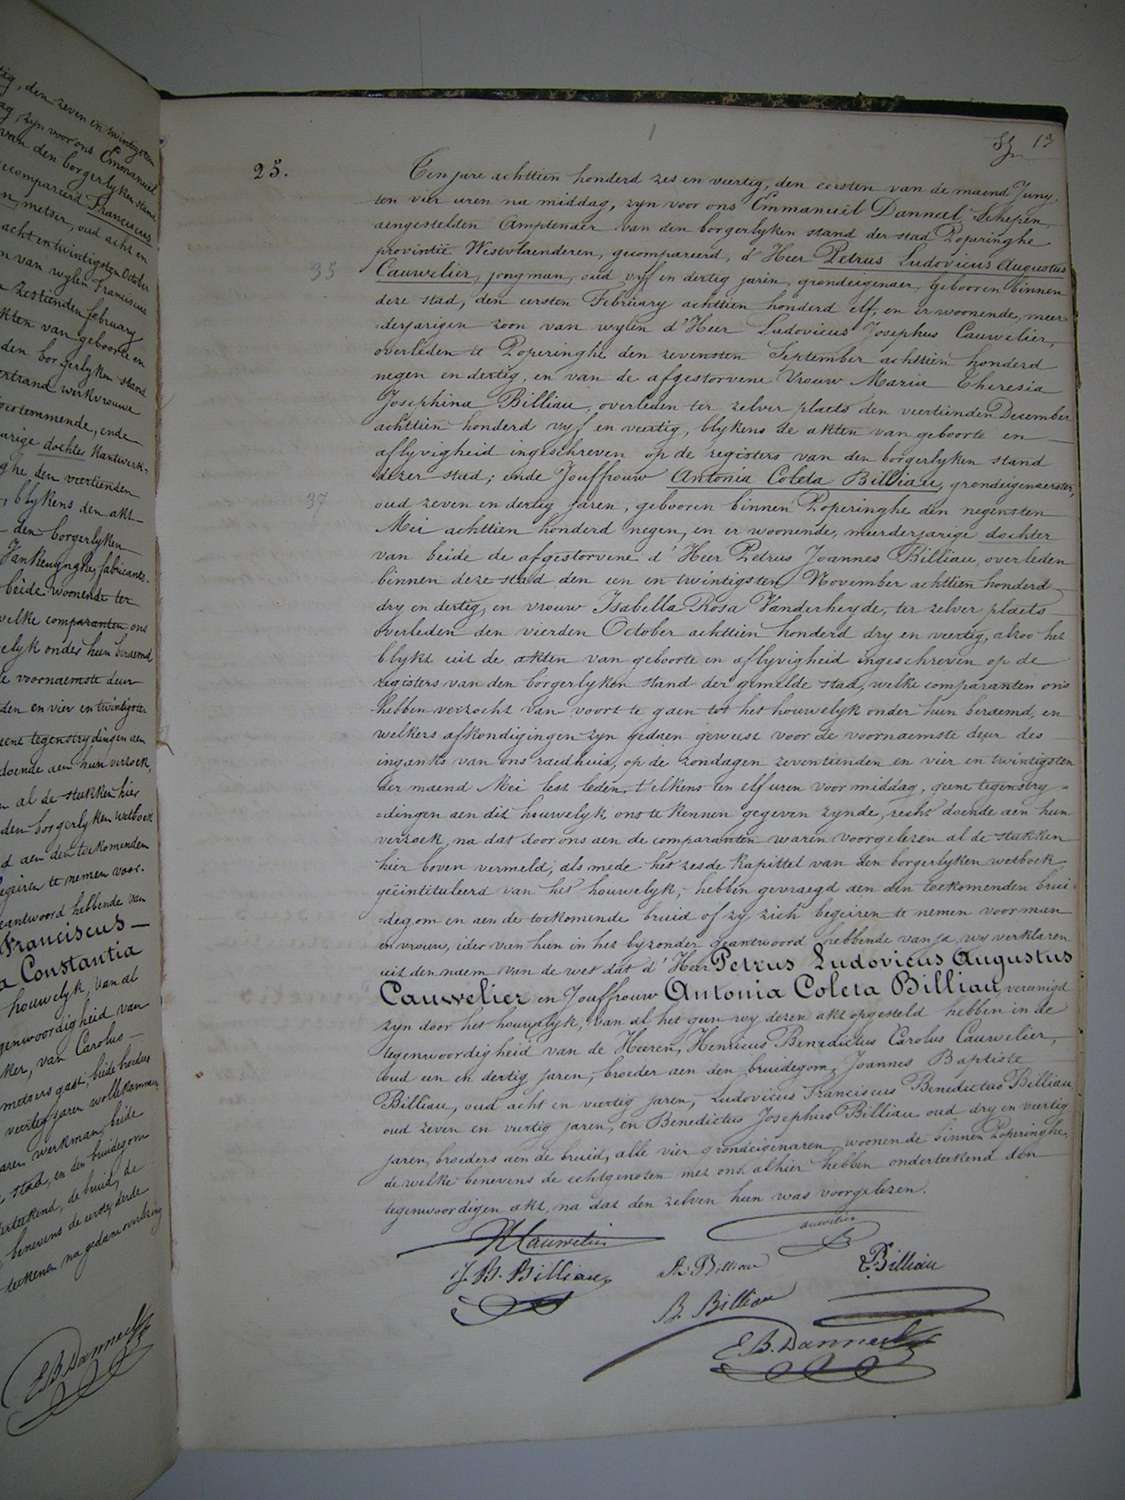 tig, den zeven en twintigsten
ag, zyn voor ons Emmanuel
van den borgerlyken stand
ecomparierd Franciscus
metser, oud acht en
acht en twintigsten October
van wylen Franciscus
zestiende february
akten van geboorte en
den borgerlyken stand
ertrand werkvrouwe
toestemmende, ende
arige dochter Kantwerk-
ghe den veertienden
, blykens den akt
den borgerlyken
fabricante
beide woonende ter
welke comparanten ons
elyk onder hun beraemd
e voornaemste deur
den en vier en twintigste
eene tegenstrydingen aen
doende aen hun verzoek,
n al de stukken hier
den borgerlyken wetboek
d aen den toekomenden
begeiren te nemen voor
eantwoord hebbende van
Franciscus
a Constantia
houwelyk, van al
genwoordigheid van
ker, van Carolus
metsers gast, beide broeders
veertig jaren volkkommen
aren werkman, beide
stad, en den bruidegom
erteekend, de bruid, de
benevens de eerste, derde
teekenen na gedaene voorlezing
E B Danneel
13
25.
Ten jare achttien honderd zes en veertig, den eersten van de maend Juny,
ten vier uren na middag, zyn voor ons Emmanuël Danneel, Schepen,
aengestelden Amptenaer van den borgerlyken stand der stad Poperinghe
provintie Westvlaenderen, gecomparierd, d'Heer Petrus Ludovicus Augustus
35
Cauwelier, jongman, oud vyf en dertig jaren, grondeigenaer, gebooren binnen
deze stad, den eersten February achttien honderd elf, en er woonende, meer-
derjarigen zoon van wylen d'Heer Ludovicus Josephus Cauwelier,
overleden te Poperinghe den zevensten September achttien honderd
negen en dertig, en van de afgestorvene Vrouw Maria Theresia
Josephina Billiau, overleden ter zelver plaets den veertienden December
achttien honderd vyf en veertig, blykens de akten van geboorte en
aflyvigheid ingeschreven op de registers van den borgerlyken stand
dezer stad; ende Jouffrouw Antonia Coleta Billiau, grondeigenerster,
37
oud zeven en dertig jaren, gebooren binnen Poperinghe den negensten
Mei achttien honderd negen, en er woonende, meerderjarige dochter
van beide de afgestorvene d'Heer Petrus Joannes Billiau, overleden
binnen deze stad den een en twintigsten November achttien honderd
dry en dertig, en vrouw Isabella Rosa Vanderheyde, ter zelver plaets
overleden den vierden October achttien honderd dry en veertig, alzoo het
blykt uit de akten van geboorte en aflyvigheid ingeschreven op de
registers van den borgerlyken stand der gemelde stad, welke comparanten ons
hebben verzocht van voort te gaen tot het houwelyk onder hun beraemd, en
welkers afkondigingen zyn gedaen geweest voor de voornaemste deur des
inganks van ons raedhuis, op de zondagen zeventienden en vier en twintigsten
der maend Mei lest leden, t'elkens ten elf uren voor middag, geene tegenstry-
dingen aen dit houwelyk ons te kennen gegeven zynde, recht doende aen hun
verzoek, na dat door ons aen de comparanten waren voorgelezen al de stukken
hier boven vermeld, als mede het zesde kapittel van den borgerlyken wetboek
geëintituleerd van het houwelyk, hebben gevraegd aen den toekomenden brui-
degom en aen de toekomende bruid of zy zich begeiren te nemen voor man
en vrouw, ider van hun in het byzonder geantwoord hebbende van ja, wy verklaren
uit den naem van de wet dat d'Heer Petrus Ludovicus Augustus
Cauwelier en Jouffrouw Antonia Coleta Billiau, vereenigd
zyn door het houwelyk, van al het gun wy dezen akt opgesteld hebben in de
tegenwoordigheid van de Heeren, Henricus Benedictus Carolus Cauwelier,
oud een en dertig jaren, broeder aen den bruidegom, Joannes Baptiste
Billiau, oud acht en veertig jaren, Ludovicus Franciscus Benedictus Billiau
oud zeven en veertig jaren, en Benedictus Josephus Billiau oud dry en veertig
jaren, broeders aen de bruid, alle vier grondeigenaren, woonende binnen Poperinghe,
de welke benevens de echtgenoten met ons alhier hebben onderteekend den
tegenwoordigen akt, na dat den zelven hun was voorgelezen.
Cauwelier
auwelier
J. B. Billiau
Billiau
Billiau
B. Billiau
E. B. Danneel